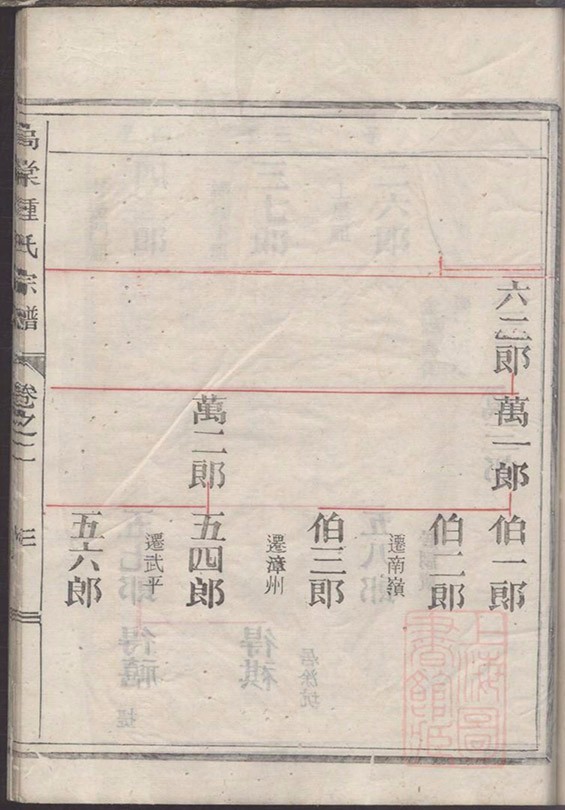 六二郎
萬一郎
伯一郎
伯二郎
遷南嶺
伯三郎
遷漳州
萬二郎
五四郎
遷武平
五六郎
鍾氏宗譜
卷之二
上海圖書館